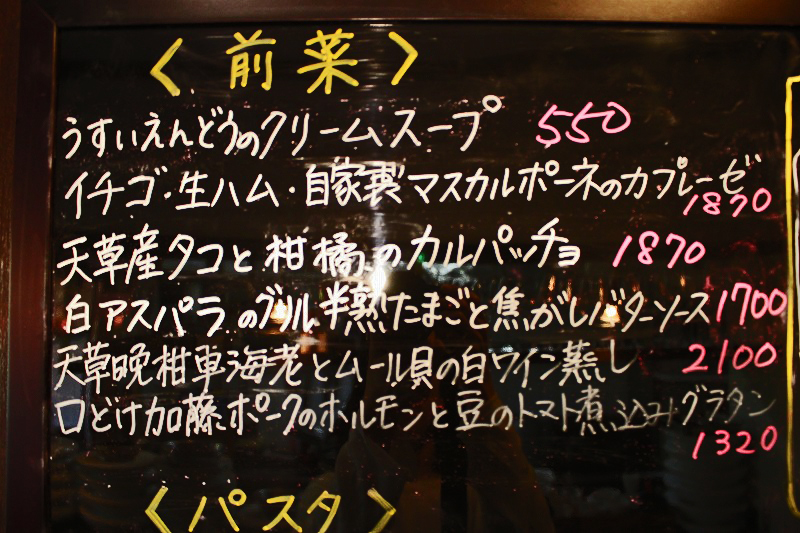 〈前菜〉
うすいえんどうのクリームスープ 550
イチゴ・生ハム・自家製マスカルポーネのカプレーゼ
1870
天草産タコと柑橘のカルパッチョ 1870
白アスパラのグリル 半熟たまごと焦がしバターソース 1700
天草晩柑車海老とムール貝の白ワイン蒸し 2100
口どけ加藤ポークのホルモンと豆のトマト煮込みグラタン
1320
〈パスタ〉